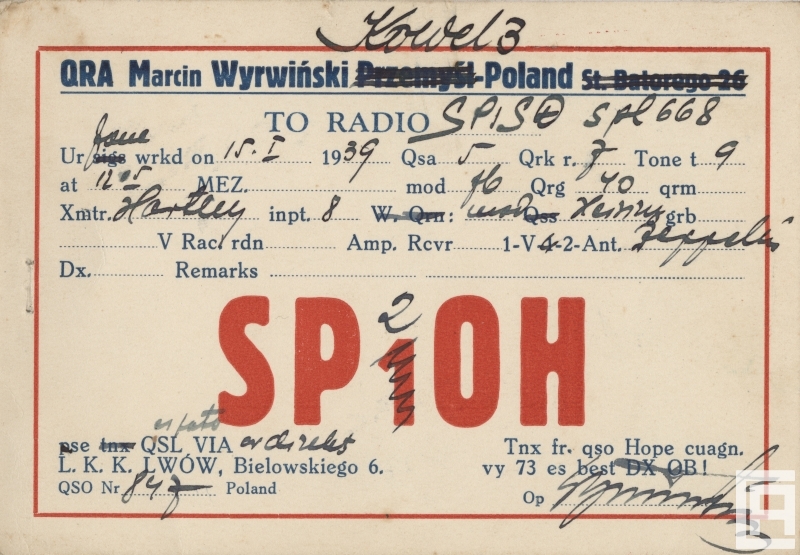 Kowel 3
QRA Marcin Wyrwiński Przemyśl-Poland St. Batorego 26
TO RADIO SP1SO spl 668
fone
Ur sigs wrkd on 15. I 1939 Qsa 5 Qrk r. 7 Tone t 9
at 12 05 MEZ. mod fb Qrg 40 qrm
Xmtr. Hartley inpt. 8 W. Qrn: mod Qss Heising grb
V Rac. rdn Amp. Rcvr 1-V-2-Ant. Zeppelin
Dx. Remarks
2
SP1OH
es foto
pse tnx QSL VIA or direkt
L. K. K. LWÓW, Bielowskiego 6.
QSO Nr 847 Poland
Tnx fr. qso Hope cuagn.
vy 73 es best DX OB!
Op